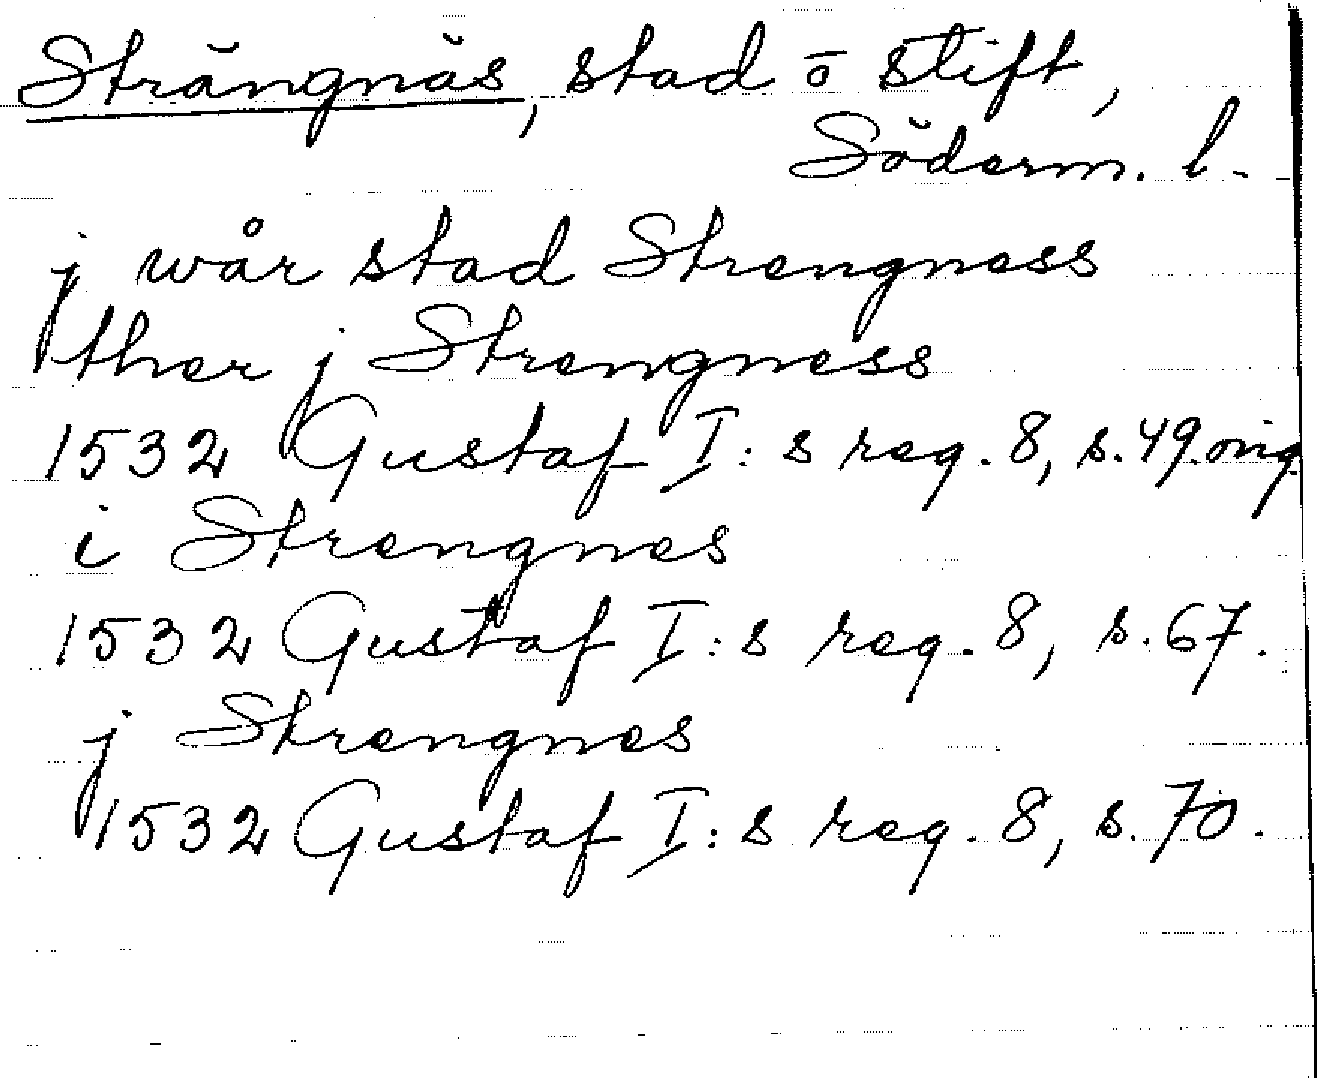 Strängnäs, stad o stift,
Söderm. l.
j wår stad Strengness
ther j Strengness
1532 Gustaf I:s reg. 8, s. 49. orig.
i Strengnes
1532 Gustaf I:s reg. 8, s. 67.
j Strengnes
1532 Gustaf I:s reg. 8, s. 70.